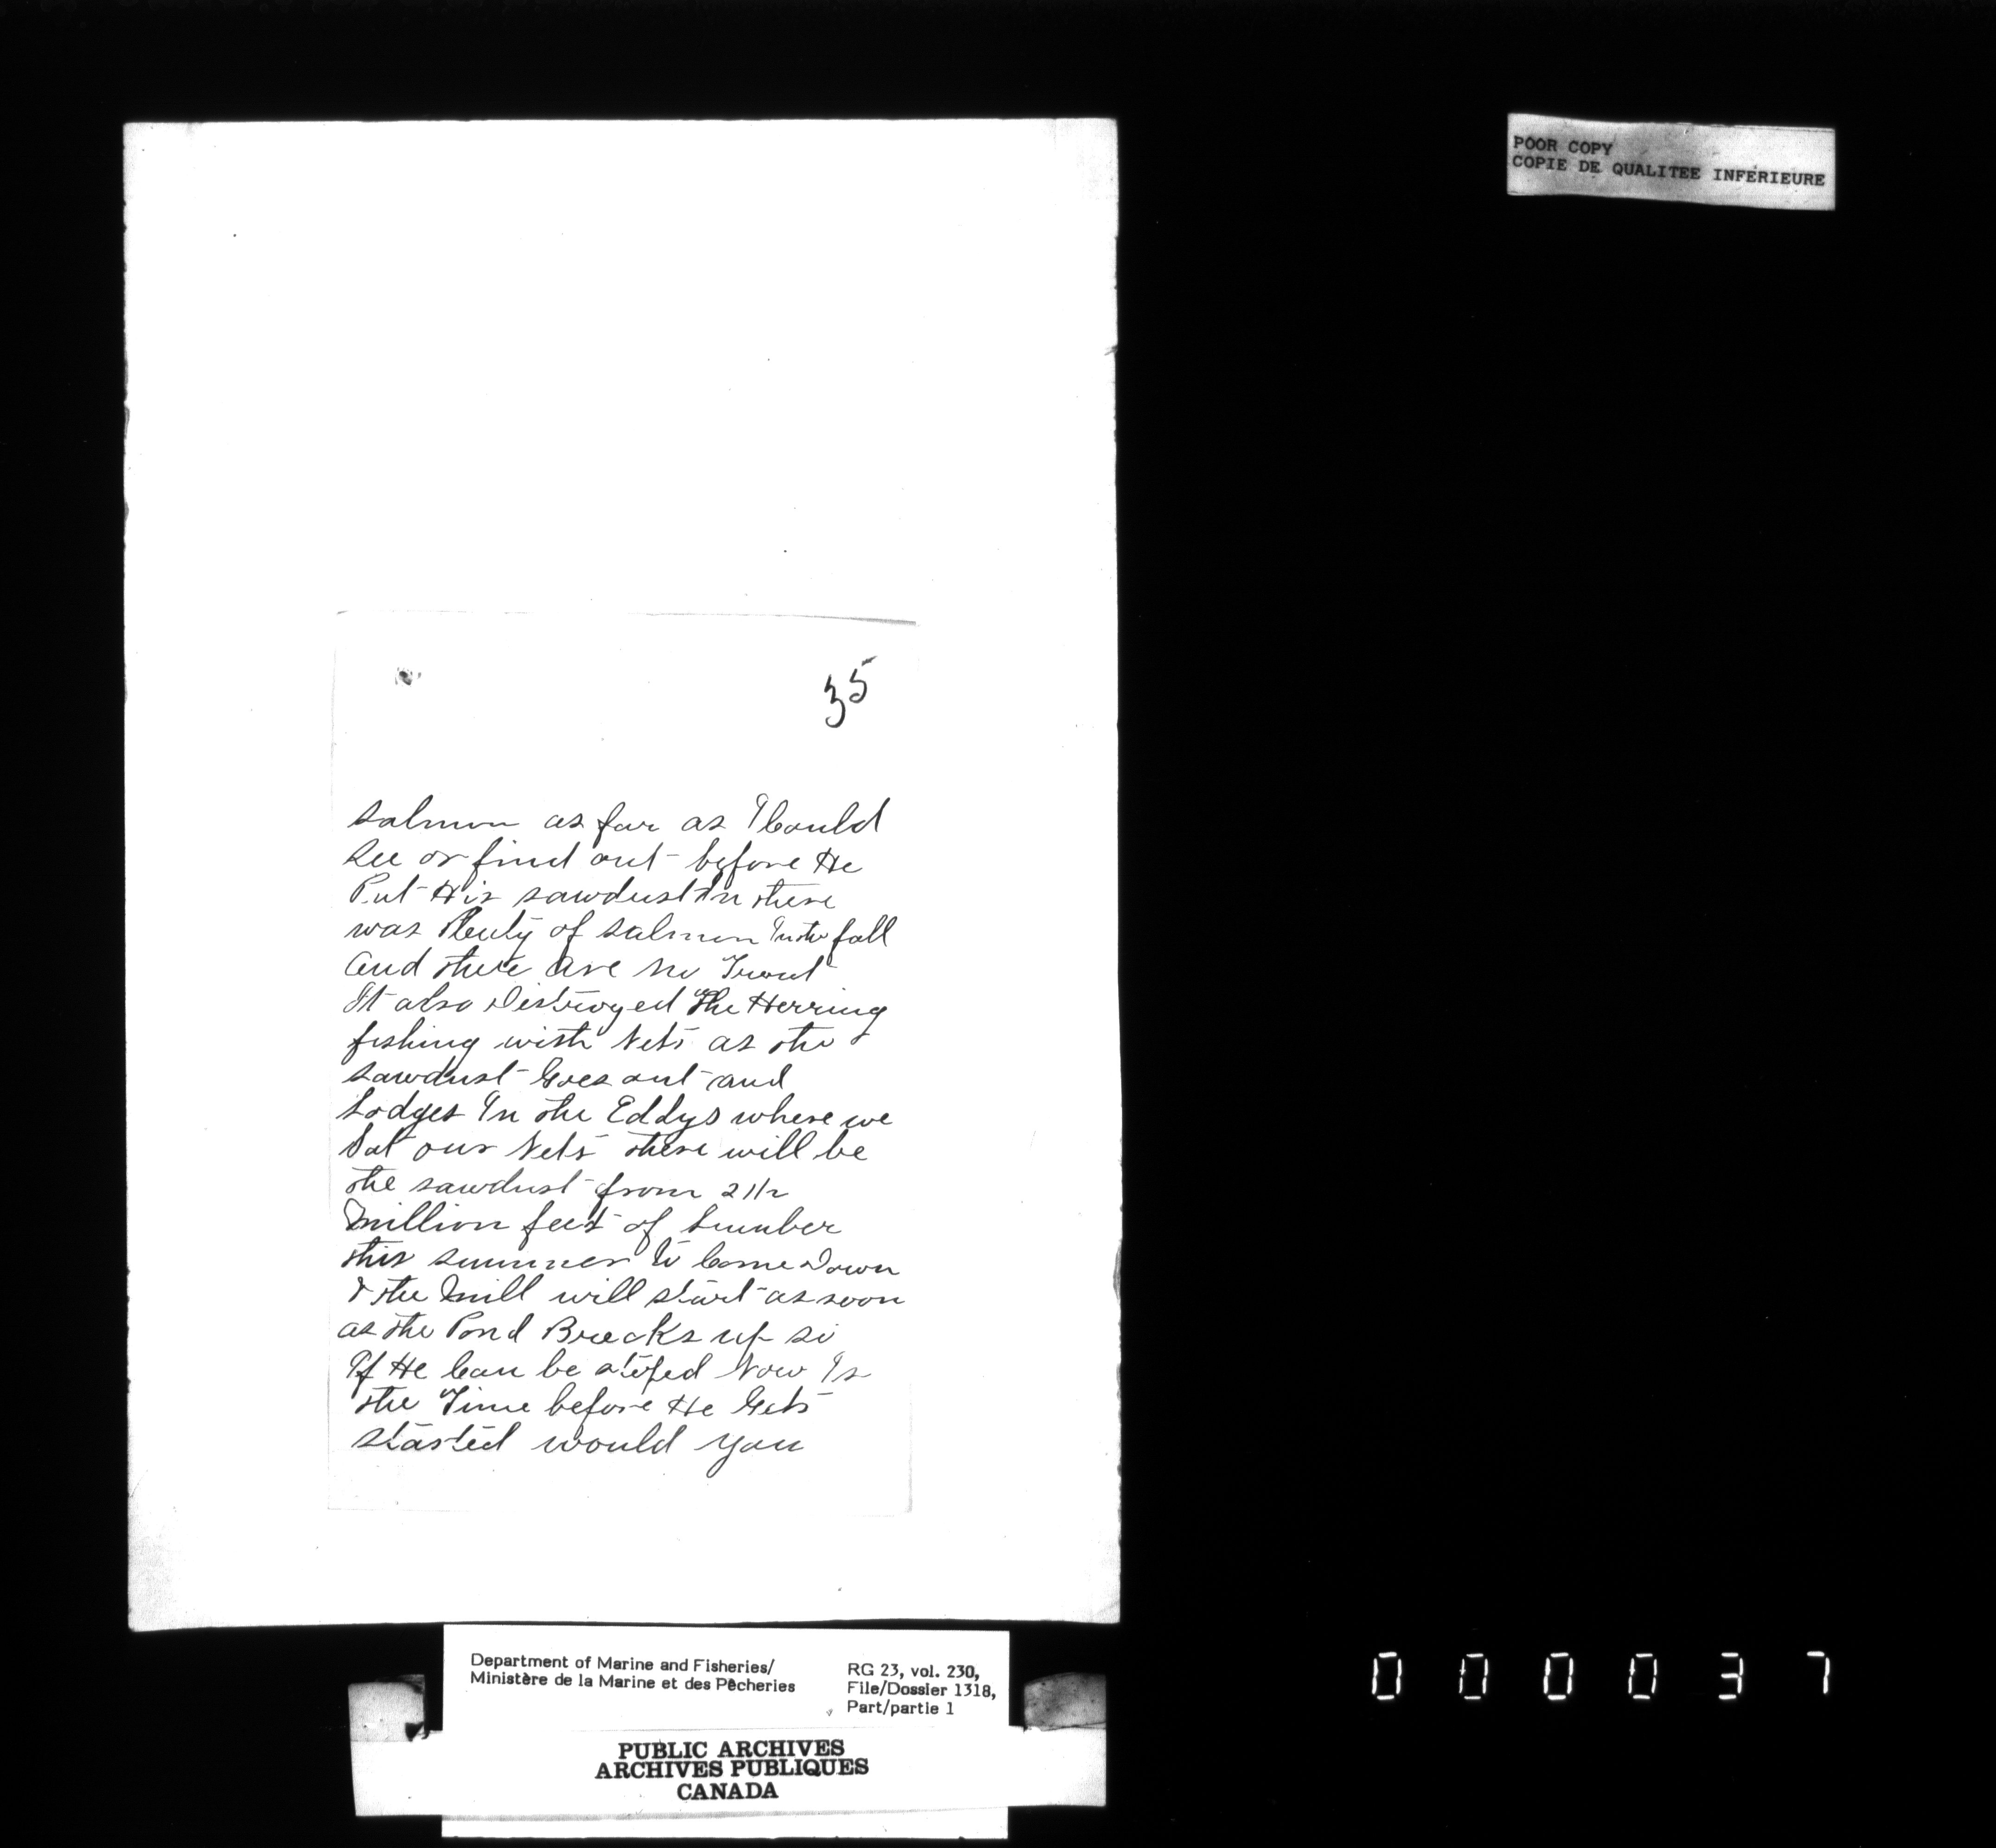 POOR COPY
COPIE DE QUALITEE INFERIEURE
35
salmon as far as I Could
see or find out before He
Put His sawdust In there
was Plenty of salmon In the fall
and there are no Trout
It also Distroyed The Herring
fishing with Nets as the
sawdust Goes out and
Lodges In the Eddys where we
Set our Nets there will be
the sawdust from 2 1/2
Million feet of Lumber
this summer to Come Down
& the Mill will start as soon
as the Pond Breaks up so
If He Can be stoped Now Is
the Time before He Gets
started would you
Department of Marine and Fisheries/
Ministère de la Marine et des Pêcheries
RG 23, vol. 230,
File/Dossier 1318,
Part/partie 1
PUBLIC ARCHIVES
ARCHIVES PUBLIQUES
CANADA
000037